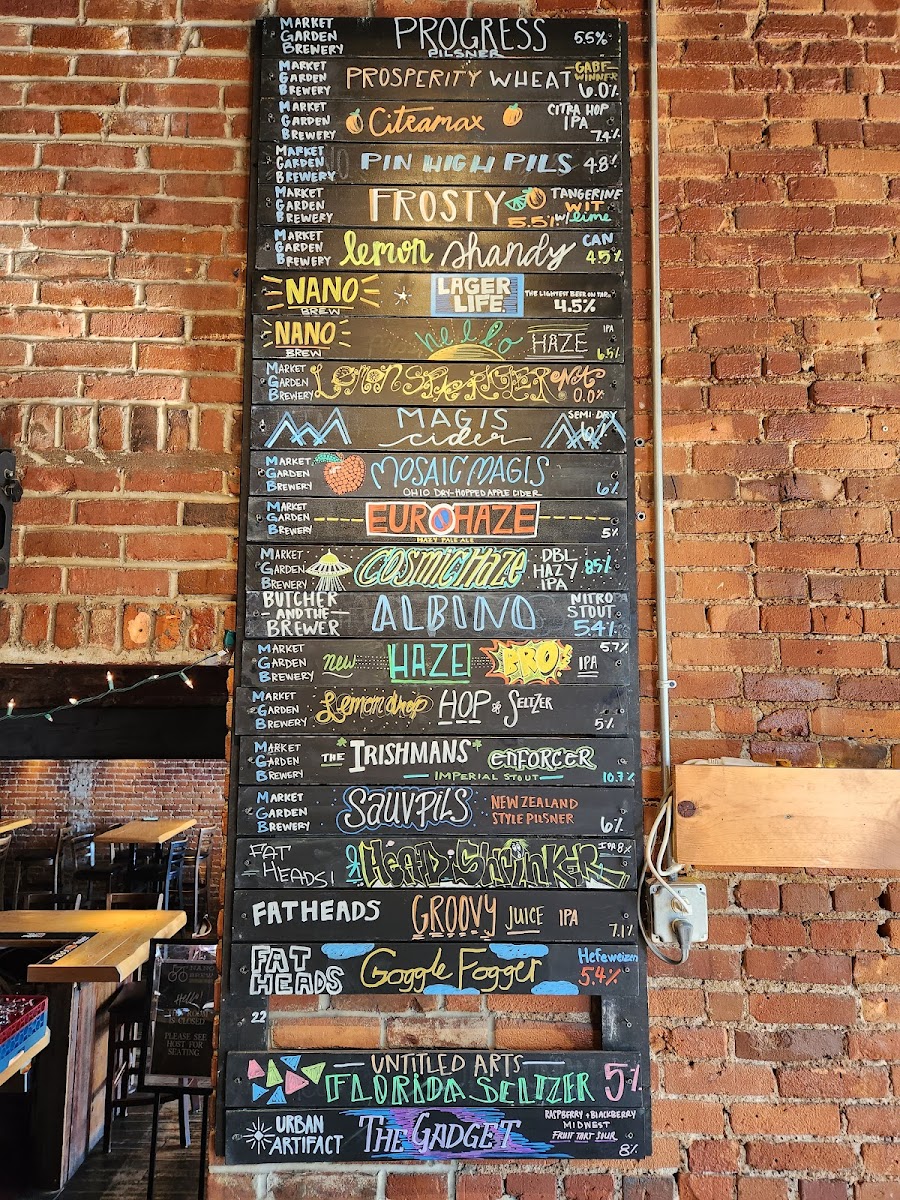 MARKET GARDEN BREWERY PROGRESS PILSNER 5.5%
MARKET GARDEN BREWERY PROSPERITY WHEAT GABF WINNER 6.0%
MARKET GARDEN BREWERY Citramax CITRA HOP IPA 7.4%
MARKET GARDEN BREWERY PIN HIGH PILS 4.8%
MARKET GARDEN BREWERY FROSTY TANGERINE WIT 5.5% w/ lime
MARKET GARDEN BREWERY lemon shandy CAN 4.5%
NANO BREW LAGER LIFE THE LIGHTEST BEER ON TAP 4.5%
NANO BREW hello HAZE IPA 6.5%
MARKET GARDEN BREWERY 0.0%
MAGIS cider SEMI-DRY 6%
MARKET GARDEN BREWERY MOSAIC MAGIS OHIO DRY-HOPPED APPLE CIDER 6%
MARKET GARDEN BREWERY EUROHAZE HAZY PALE ALE 5%
MARKET GARDEN BREWERY COSMIC HAZE DBL HAZY IPA 8.5%
BUTCHER AND THE BREWER ALBINO NITRO STOUT 5.4%
MARKET GARDEN BREWERY new HAZE BRO! IPA 5.7%
MARKET GARDEN BREWERY Lemondrop HOP SELTZER 5%
MARKET GARDEN BREWERY THE IRISHMANS ENFORCER IMPERIAL STOUT 10.7%
MARKET GARDEN BREWERY SAUVPILS NEW ZEALAND STYLE PILSNER 6%
FAT HEADS! HEADSHINKER IPA 8%
FATHEADS GROOVY JUICE IPA 7.1%
FAT HEADS Goggle Fogger Hefeweizen 5.4%
22
UNTITLED ARTS FLORIDA SELTZER 5%
URBAN ARTIFACT THE GADGET RASPBERRY + BLACKBERRY MIDWEST FRUIT TART SOUR 8%
Hello
IS CLOSED
PLEASE SEE
HOST FOR
SEATING